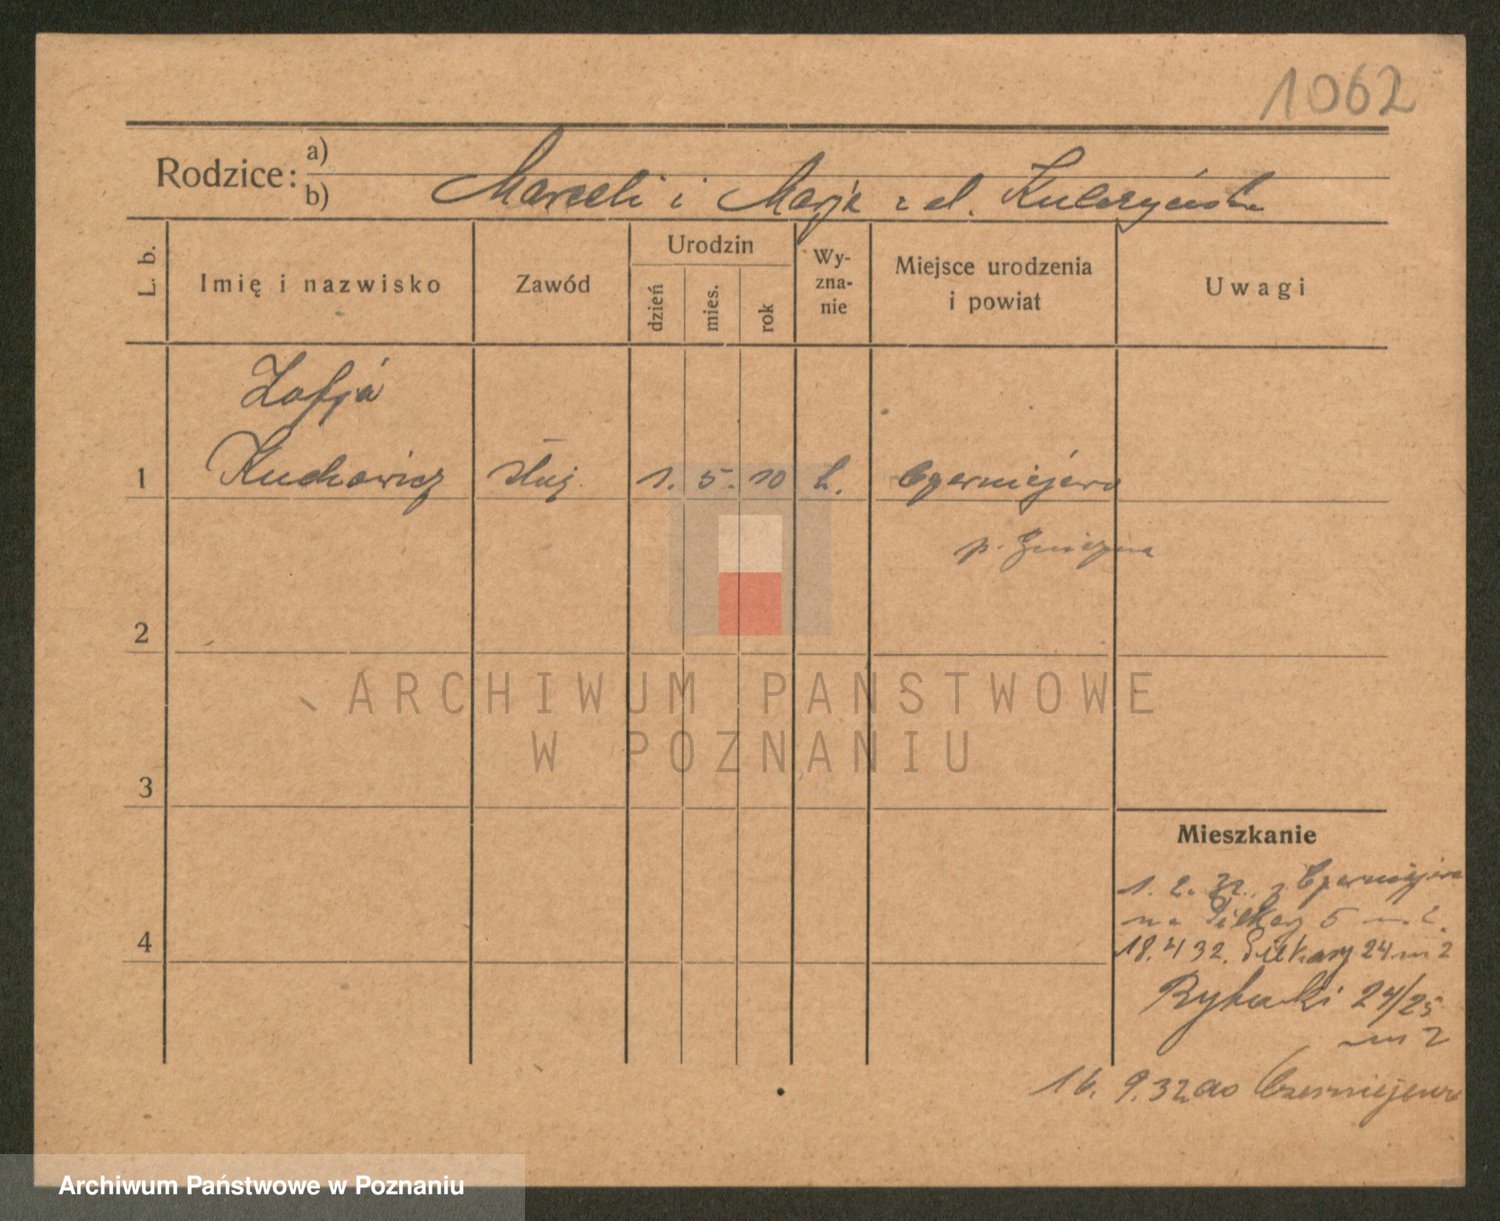 1062
Rodzice: a)
b) Marceli i Marja z d. Kulczyńska
L. b.
Imię i nazwisko
Zawód
Urodzin
dzień
mies.
rok
Wy-
zna-
nie
Miejsce urodzenia
i powiat
Uwagi
Zofja
1 Kuchowicz służ. 1. 5. 10 k. Czerniejewo
p. Gniezno
2
3
4
ARCHIWUM PAŃSTWOWE
W POZNANIU
Mieszkanie
1. 2. 32. z Czerniejewa
na 5 m 2.
18. 4 32. 24 m 2
Rybaki 24/25
m 2
16. 9. 32 do Czerniejewa
Archiwum Państwowe w Poznaniu